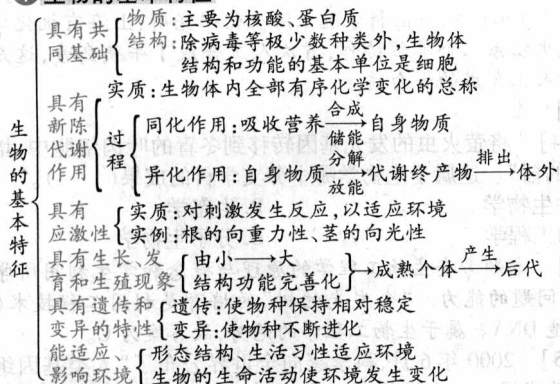 生物的基本特征
具有共同基础
物质:主要为核酸、蛋白质
结构:除病毒等极少数种类外,生物体
结构和功能的基本单位是细胞
具有新陈代谢作用
实质:生物体内全部有序化学变化的总称
过程
同化作用:吸收营养 合成 储能 自身物质
异化作用:自身物质 分解 放能 代谢终产物 排出 体外
具有应激性
实质:对刺激发生反应,以适应环境
实例:根的向重力性、茎的向光性
具有生长、发育和生殖现象
由小→大
结构功能完善化
→成熟个体 产生 后代
具有遗传和变异的特性
遗传:使物种保持相对稳定
变异:使物种不断进化
能适应、影响环境
形态结构、生活习性适应环境
生物的生命活动使环境发生变化